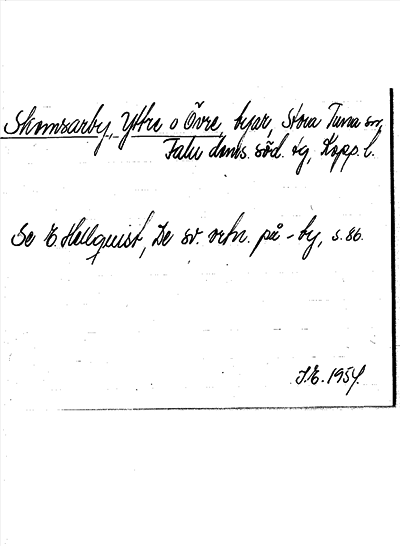 Skomsarby, Yttre o Övre, byar, Stora Tuna sn,
Falu doms. söd. tg, Kopp. l.
Se E. Hellquist, De sv. ortn. på -by, s. 86.
J.E. 1954.